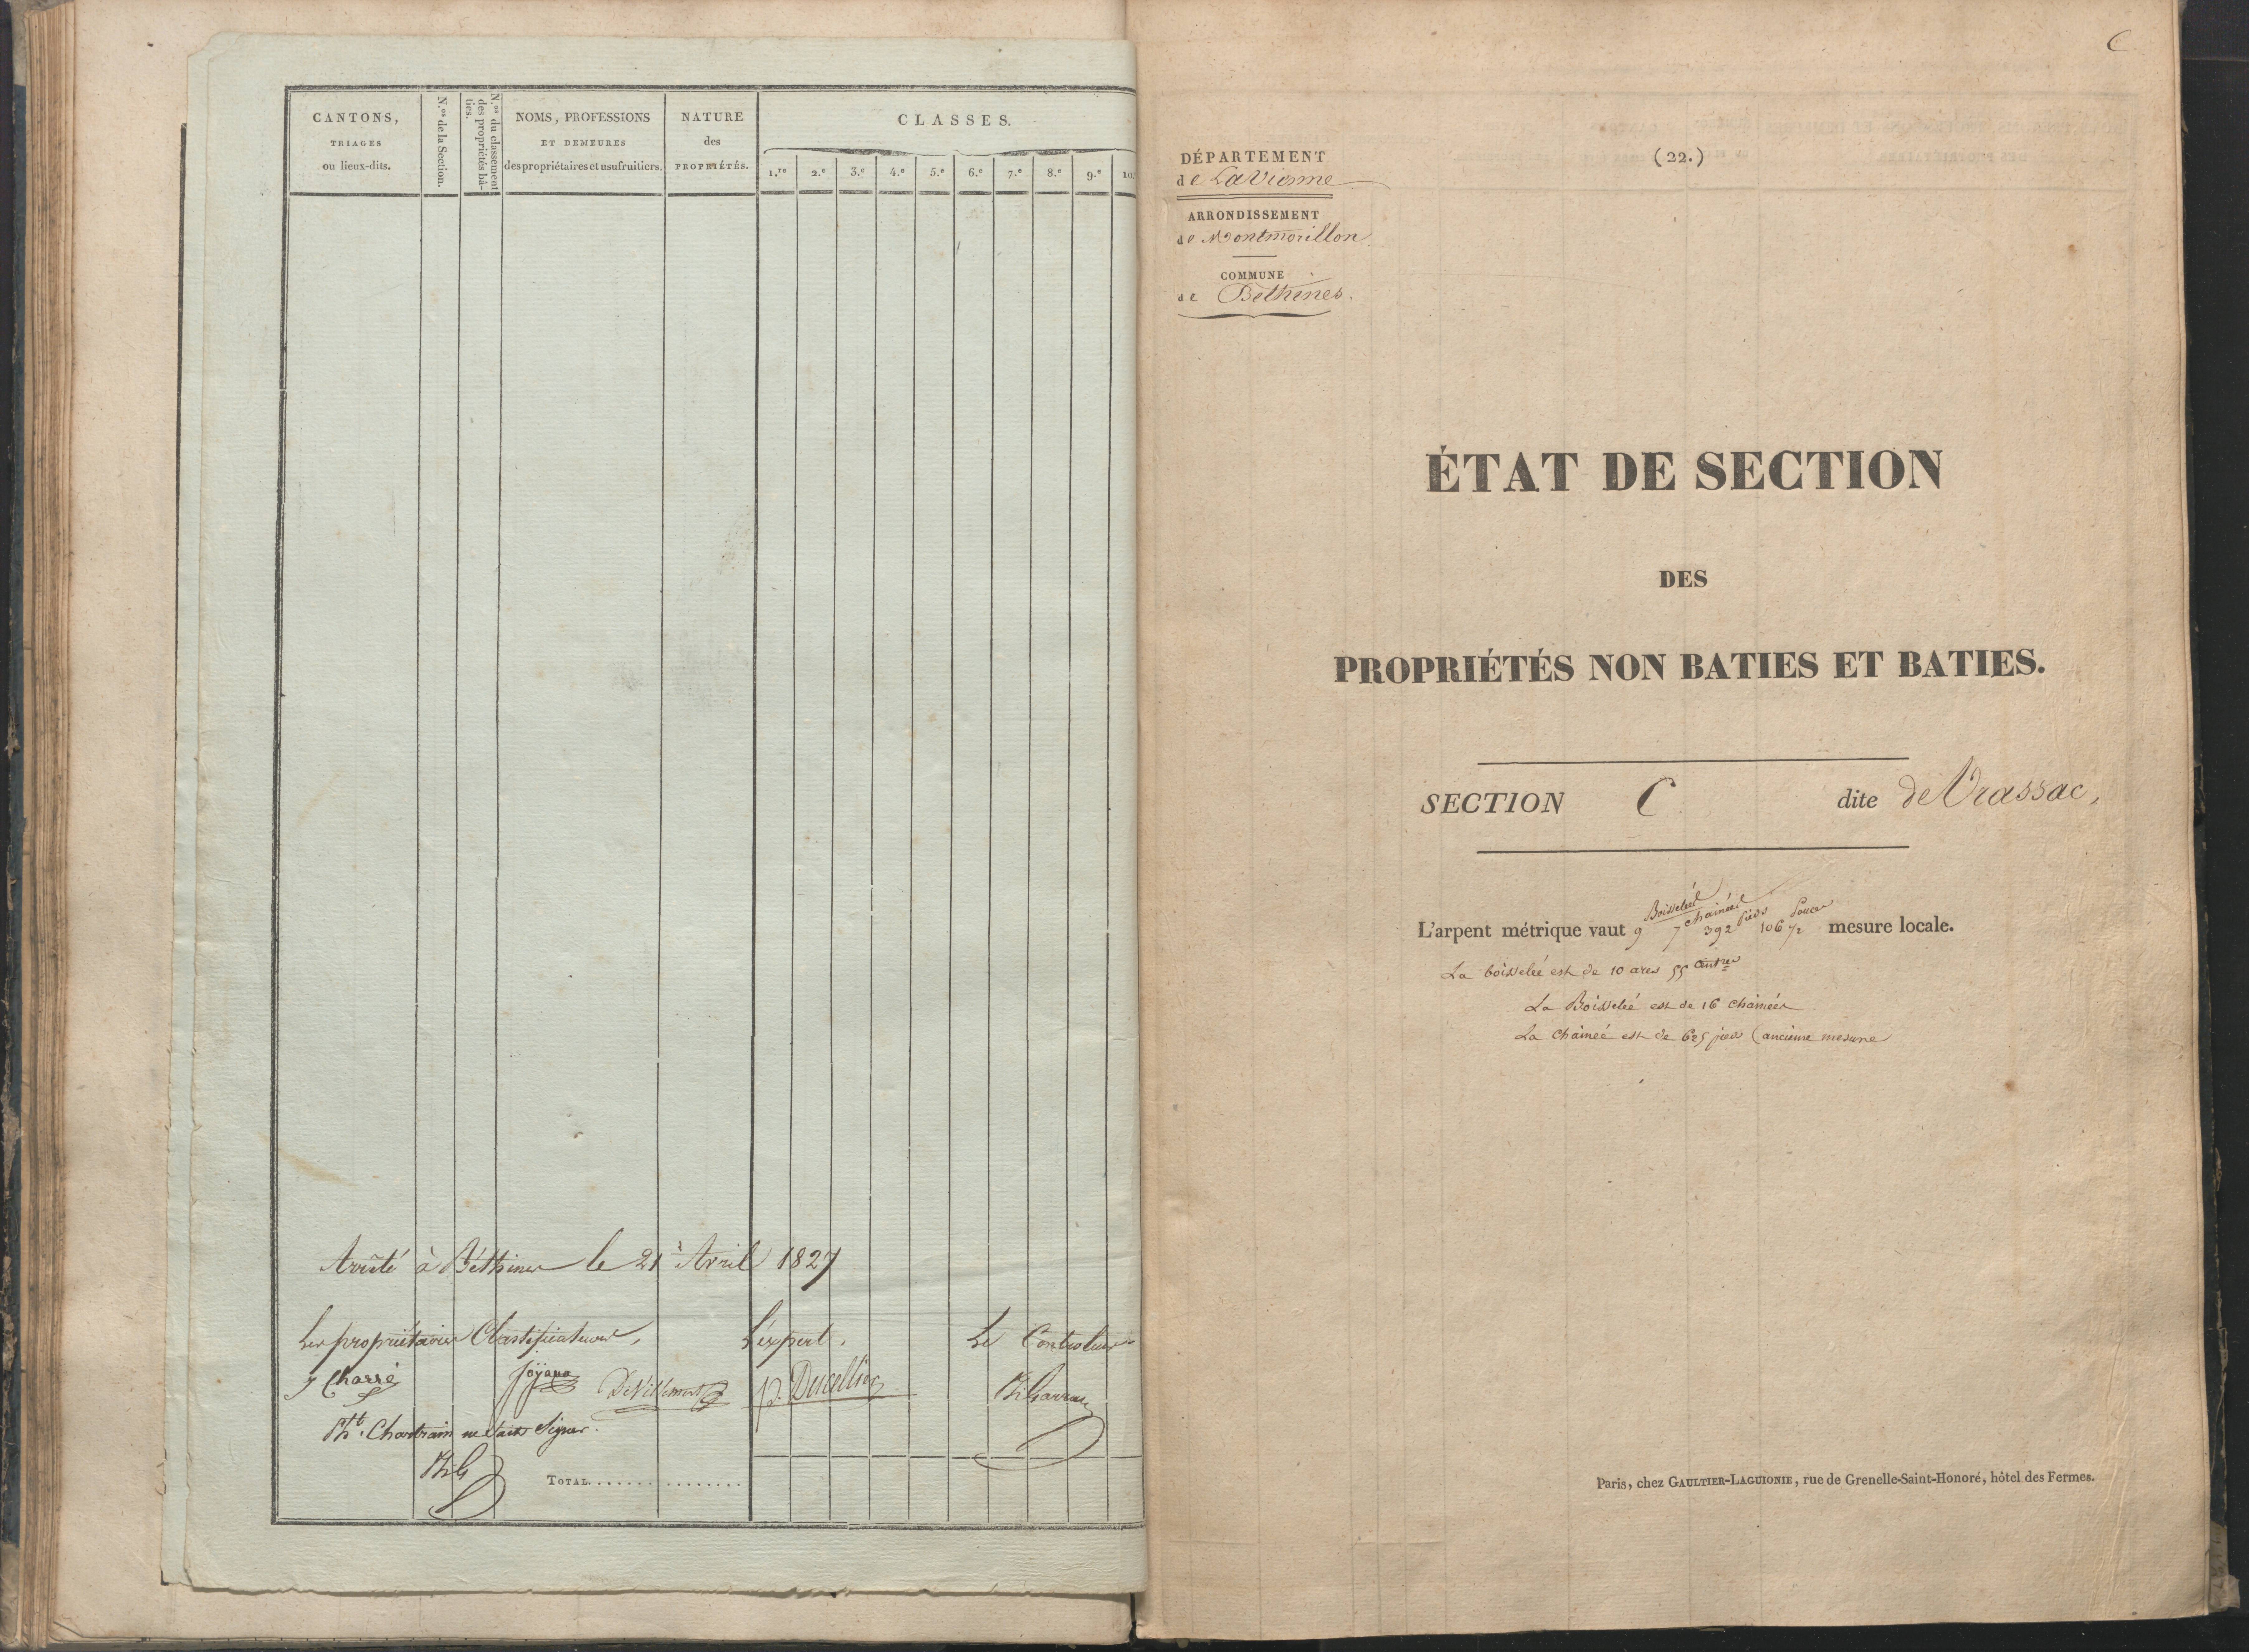 CANTONS,
TRIAGES
ou lieux-dits.
N.os de la Section.
N.os du classement
des propriétés bâ-
ties.
NOMS, PROFESSIONS
ET DEMEURES
des propriétaires et usufruitiers.
NATURE
des
PROPRIÉTÉS.
CLASSES.
1.re 2.e 3.e 4.e 5.e 6.e 7.e 8.e 9.e 10.
Arrêté à Béthines le 21 Avril 1827
Les propriétaires Classificateurs, L'expert. Le Controleur
Charré
Pt. Chartrain ne sait signer.
TOTAL
C
(22.)
DÉPARTEMENT
de La Vienne
ARRONDISSEMENT
de Montmorillon
COMMUNE
de Bethines.
ÉTAT DE SECTION
DES
PROPRIÉTÉS NON BATIES ET BATIES.
SECTION C dite de Vrassac,
L'arpent métrique vaut 9 Boisselées 7 chainées 392 pieds 106 1/2 pouces mesure locale.
La boisselée est de 10 ares 55 Centres
La Boisselée est de 16 chainées
La Chainée est de 625 pieds (ancienne mesure
Paris, chez GAULTIER-LAGUIONIE, rue de Grenelle-Saint-Honoré, hôtel des Fermes.